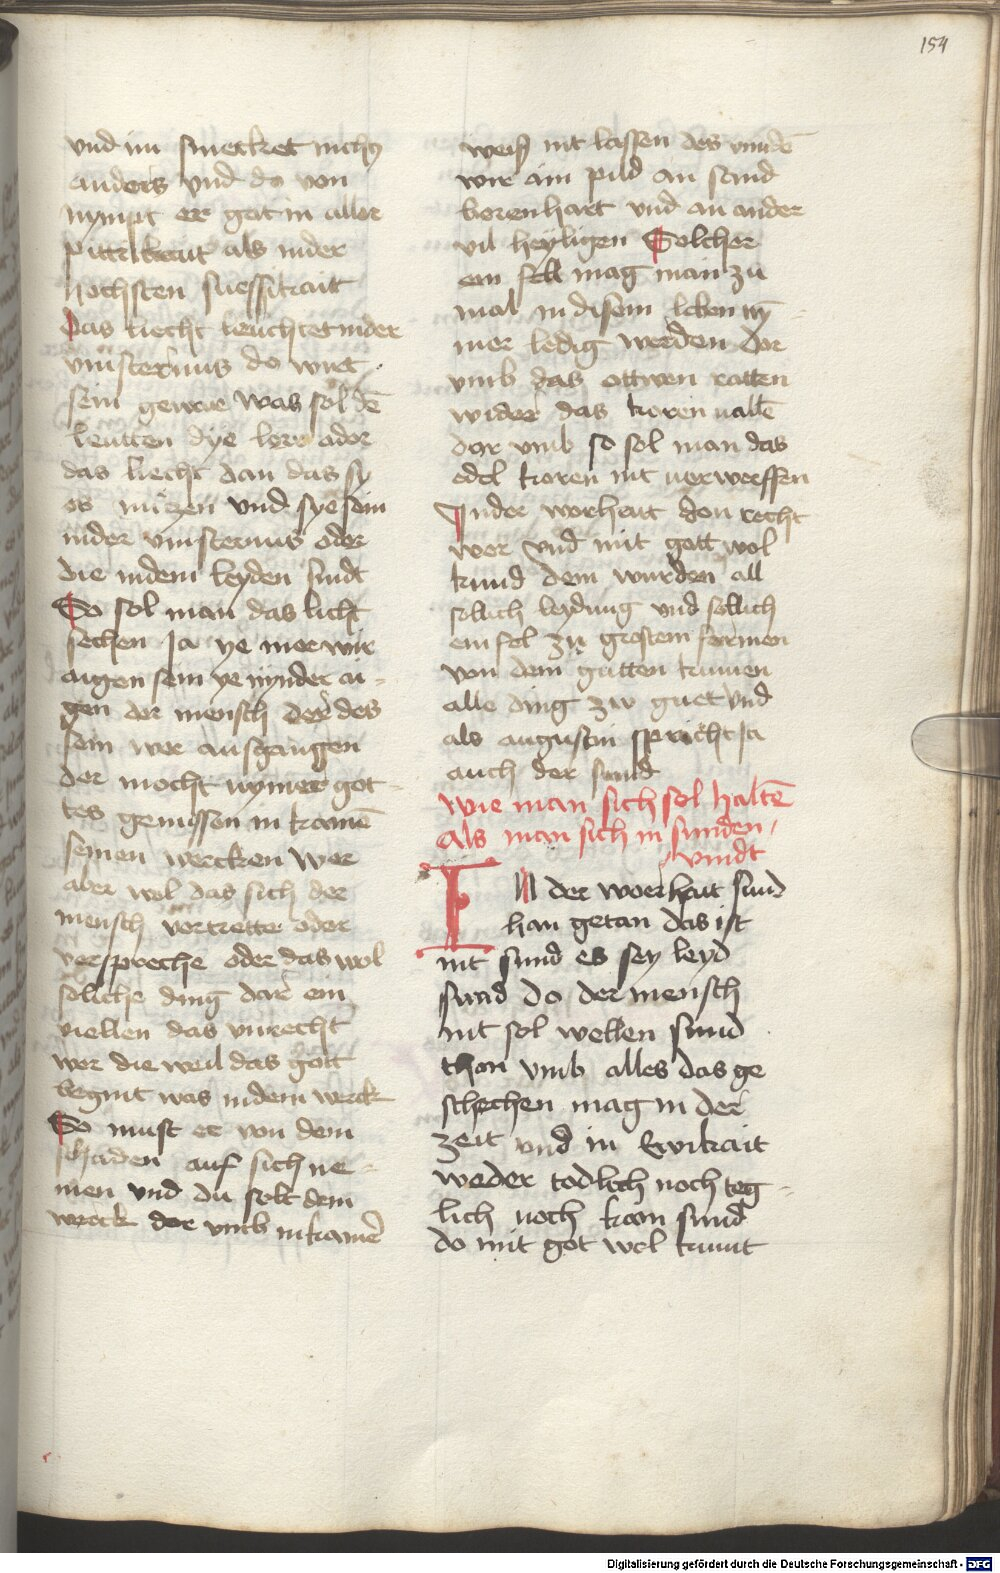 154
vnd im smecket nichß
anders vnd do von
nympt er got in aller
pittrikait als in der
hochsten suessikait
Das liecht leuchtet in der
vinsternus do wirt
sein gewar was sol dē
leutten dye lere oder
das liecht dan das sy
es nüczen vnd sye sein
in der vinsternus oder
die in dem leyden sindt
So sol man das licht
sechen Ja ye mer wir
aigen sein ye mynder ai-
gen der mensch der des
sein wer ausgangen
der mocht nymer got-
tes gemissen in kainē
seinen wercken Wer
aber wol das sich der
mensch vertrette oder
verspreche oder das wol
soliche ding dar ein
viellen das vnrecht
wer die weil das gott
begint was in dem werck
So must er von dem
schaden auf sich ne-
men vnd du solt dem
werck dar vmb in kainē
weiß nit lassen des vindē
wir ain pild an sand
berenhart vnd an ander
vil heyligen Solcher
ein fell mag man zu
mal in disem leben ny-
mer ledig werden dar
vmb das ottwen ratten
wider das koren vallē
dar vmb so sol man das
edel koren nit verwerffen
In der worhait don recht
wer vnd mit gott wol
kund dem wurden all
sollich leydung vnd sollich
ein fel zu grostem formen
von dem gutten kumen
alle ding zw guet vnd
als augustin spricht Ja
auch der sund
wie man sich sol haltē
als man sich in sunden
vindt
In der woerhait sund
han getan das ist
nit sund es sey leyd
sund do der mensch
nit sol wellen sund
thon vmb alles das ge
schechen mag in der
zeit vnd in Ewikait
weder todlich noch teg-
lich noch kain sund
do mit got wol kunt
Digitalisierung gefördert durch die Deutsche Forschungsgemeinschaft - DFG